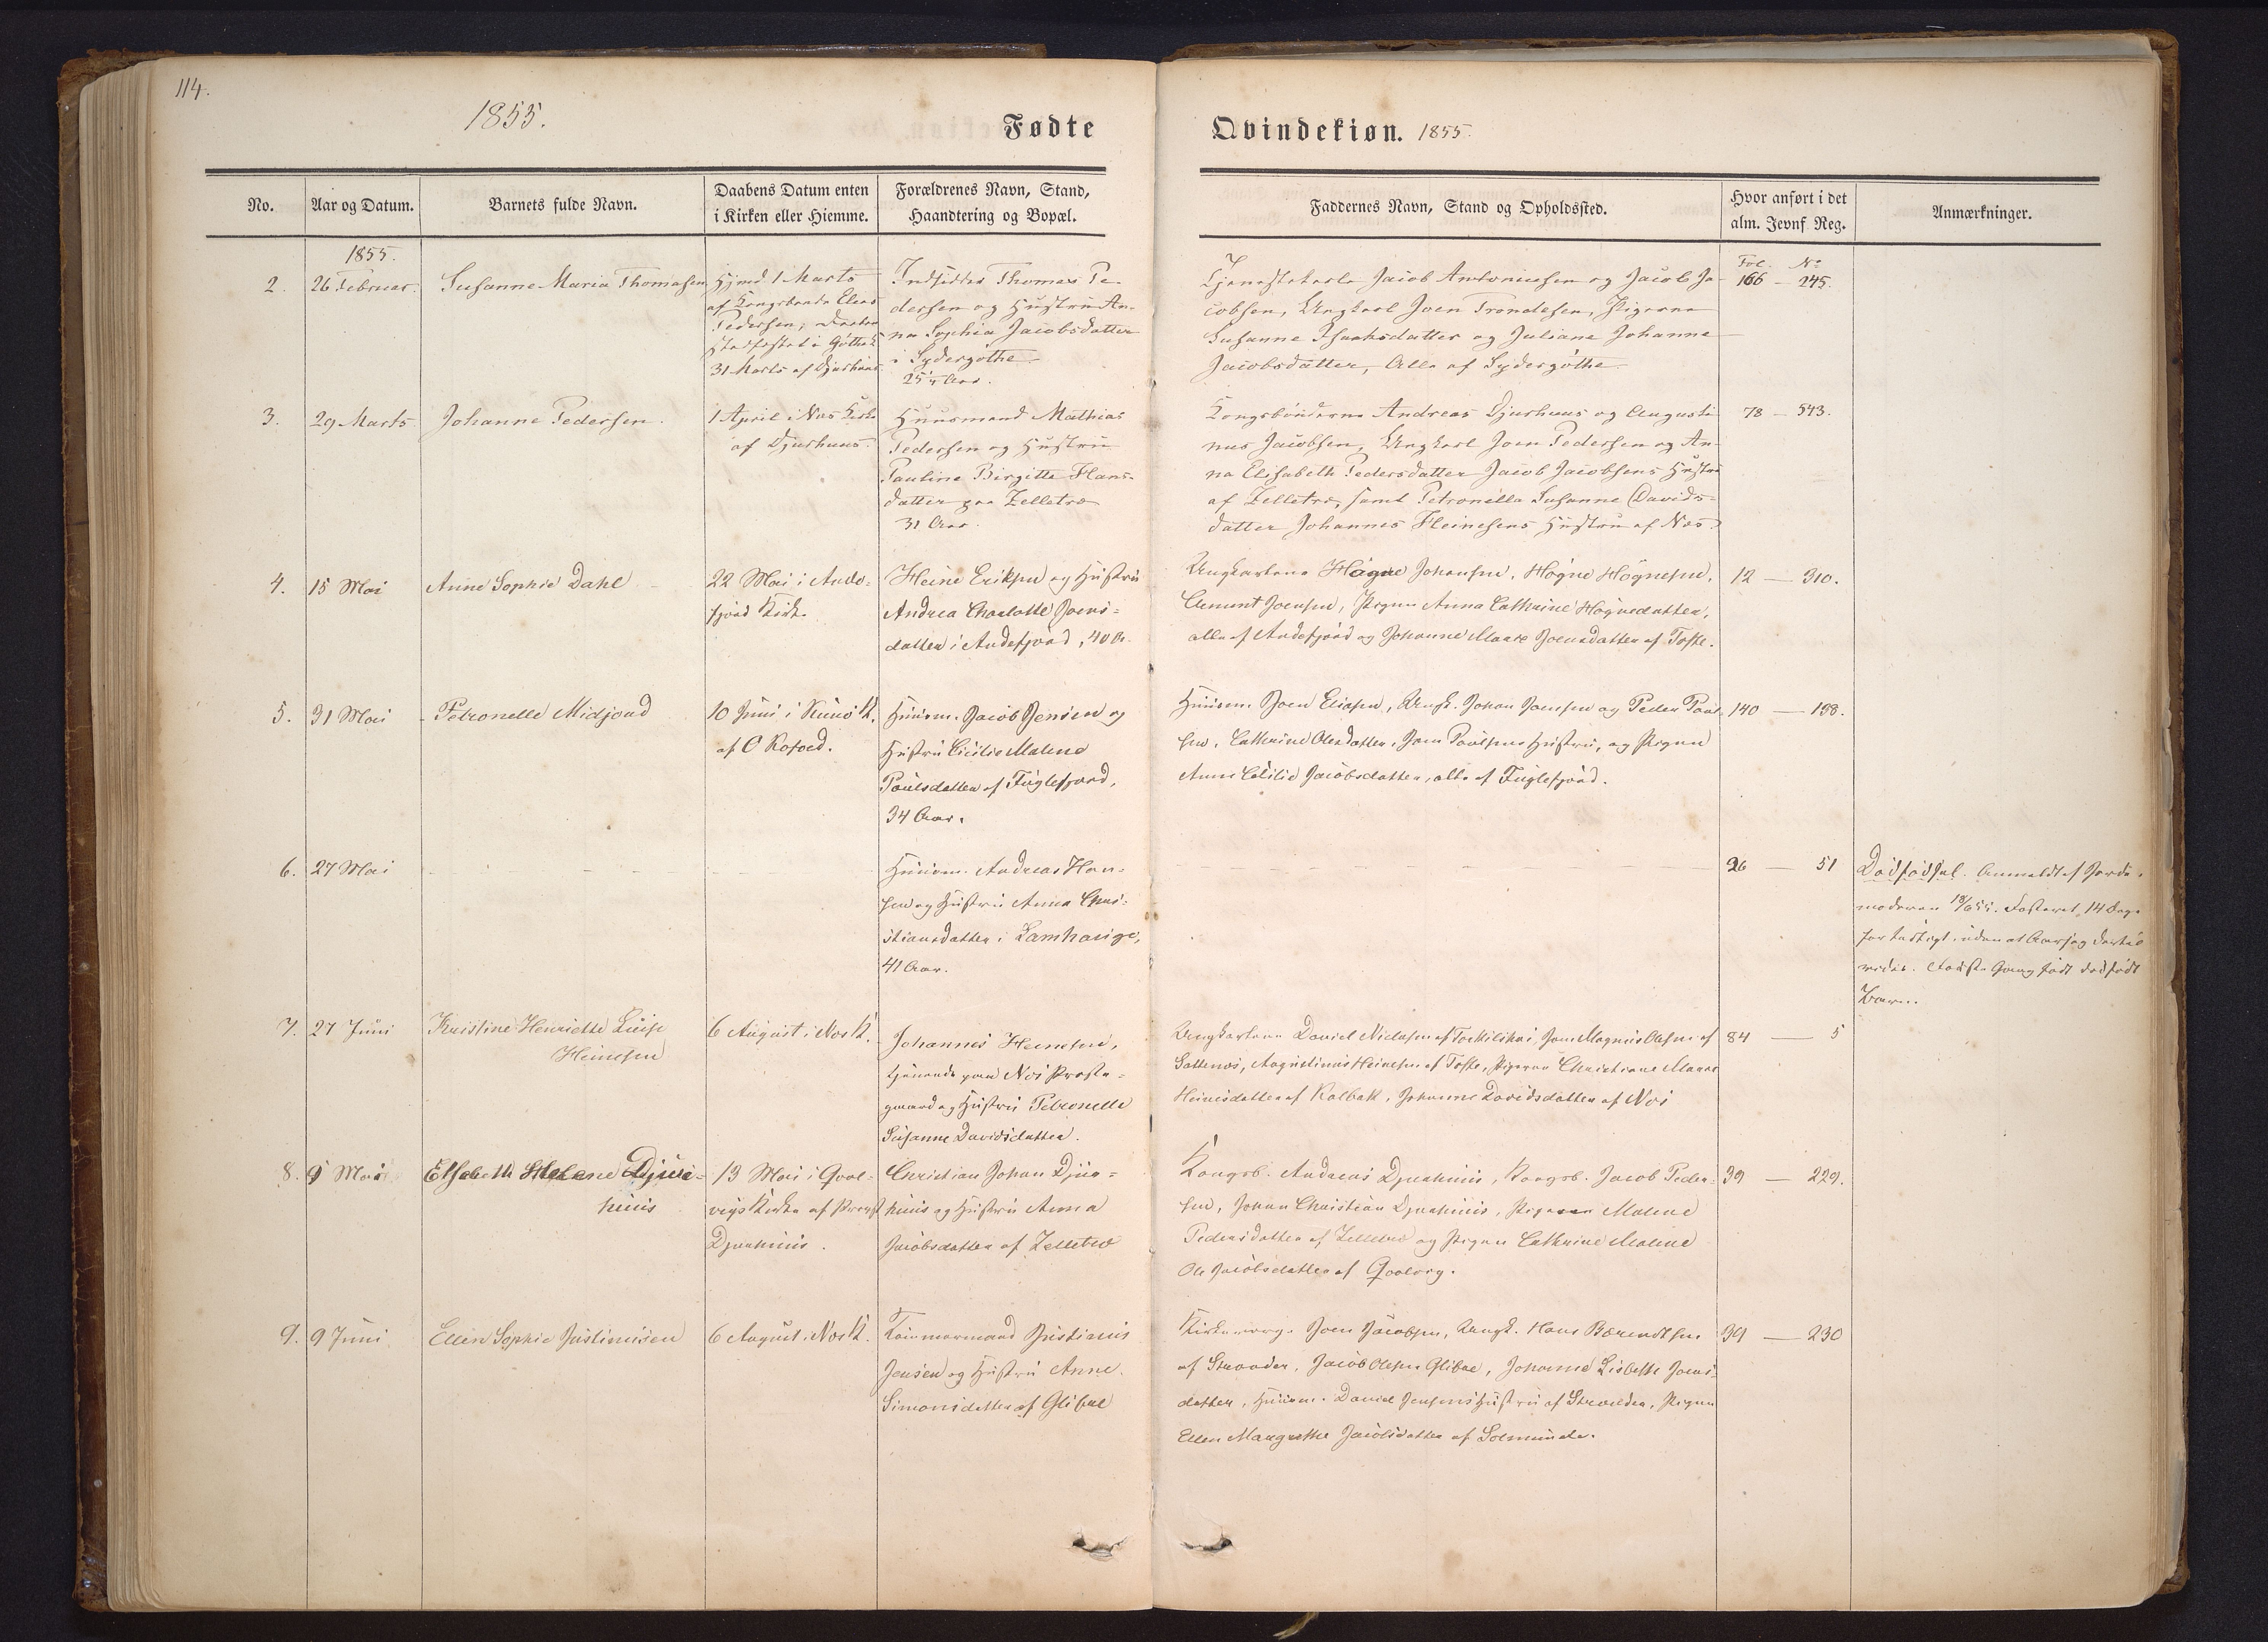 114.
1855.
Fødte
Qvindekiøn. 1855.
No.
Aar og Datum.
Barnets fulde Navn.
Daabens Datum enten
i Kirken eller Hiemme.
Forældrenes Navn, Stand,
Haandtering og Bopæl.
Faddernes Navn, Stand og Opholdssted.
Hvor anført i det
alm. Jevnf Reg.
Anmærkninger.
1855.
2.
26 Februar.
Susanne Maria Thomasen
Hjmd 1 Marts
af Kongsbonde Elias
Pedersen, Daaben
stadfæstet i Göthe K
31 Marts af Djurhuus
Indsidder Thomas Pe-
dersen og Hustru An-
na Sophia Jacobsdatter
i Sydergöthe
25¼ Aar.
Tjenestekarle Jacob Antoniusen og Jacob Ja-
cobsen, Ungkarl Joen Trondesen, Pigerne
Susanne Isaaksdatter og Juliane Johanne
Jacobsdatter, Alle af Sydergöthe
Fol. No
166 — 245.
3.
29 Marts
Johanne Pedersen.
1 April i Næs Kirke
af Djurhuus.
Huusmand Mathias
Pedersen og Hustru
Pauline Birgitte Hans-
datter paa Zelletræ
31 Aar.
Kongsbönderne Andreas Djurhuus og Augusti-
nus Jacobsen, Ungkarl Joen Pedersen og An-
na Elisabeth Pedersdatter Jacob Jacobsens Hustru
af Zelletræ, samt Petronilla Susanne Davids-
datter Johannes Heinesens Hustru af Næs
78 — 543.
4.
15 Mai
Anne Sophie Dahl
22 Mai i Ande-
fjord Kirke
Heine Eriksen og Hustru
Andrea Charlotte Joens-
datter i Andefjord, 40 A.
Ungkarlene Högne Johansen, Högne Högnesen,
Clement Joensen, Pigen Anna Cathrine Högnedatter,
alle af Andefjord og Johanne Marie Joensdatter af Tofte.
12 — 310.
5.
31 Mai
Petronelle Midjord
10 Juni i Kunö K.
af C Kofoed.
Huusm. Jacob Jensen og
Hustru Cicilie Malene
Poulsdatter af Fuglefjord,
34 Aar.
Huusm. Joen Eliasen, Ungk. Johan Joensen og Peder Poul-
sen, Cathrine Olesdatter, Joen Poulsens Hustru, og Pigen
Anne Cecilie Jacobsdatter, alle af Fuglefjord.
140 — 198.
6.
27 Mai
Huusm. Andreas Han-
sen og Hustru Anna Chri-
stiansdatter i Lamhauge,
41 Aar.
26 — 51
Dödfödsel. Anmeldt af Jorde-
moderen
Fosteret 14 Dage
for tidligt, uden at Aarsag dertil
vides. Første Gang født dødfødt
Barn.
7.
27 Juni
Kristine Henriette Luise
Heinesen
6 August i Næs K.
Johannes Heinesen,
tjenende paa Næs Præste-
gaard og Hustru Petronelle
Susanne Davidsdatter.
Ungkarlene Daniel Niclasen af
Joen Magnus Olesen af
Saltenæs, Augustinus Heinesen af Tofte, Pigerne Christiane Marie
Heinesdatter af Kolbak, Johanne Davidsdatter af Næs
84 — 5
8.
9 Mai
Elsebeth Malene Djur-
huus
13 Mai i Qvol-
vigs Kirke af Provst
Djurhuus.
Christian Johan Djur-
huus og Hustru Anna
Jacobsdatter af Zelletræ
Kongsb. Andreas Djurhuus, Kongsb. Jacob Peder-
sen, Johan Christian Djurhuus, Pigerne Malene
Pedersdatter af Zelletræ og Pigen Cathrine Malene
Ole Jacobsdatter af Qvolvig.
39 — 229.
9.
9 Juni
Ellen Sophie Justinusen
6 August i Næs K.
Tömmermand Justinus
Jensen og Hustru Anne
Simonsdatter af Glibre
Kirkeværge Joen Jacobsen, Ungk. Hans Bærendtsen
af Strænder, Jacob Olesen Glibre, Johanne Lisbeth Joens-
datter, Huusm. Daniel Jensens Hustru af Strænder, Pigen
Ellen Margrethe Jacobsdatter af Solmunde.
39 — 230